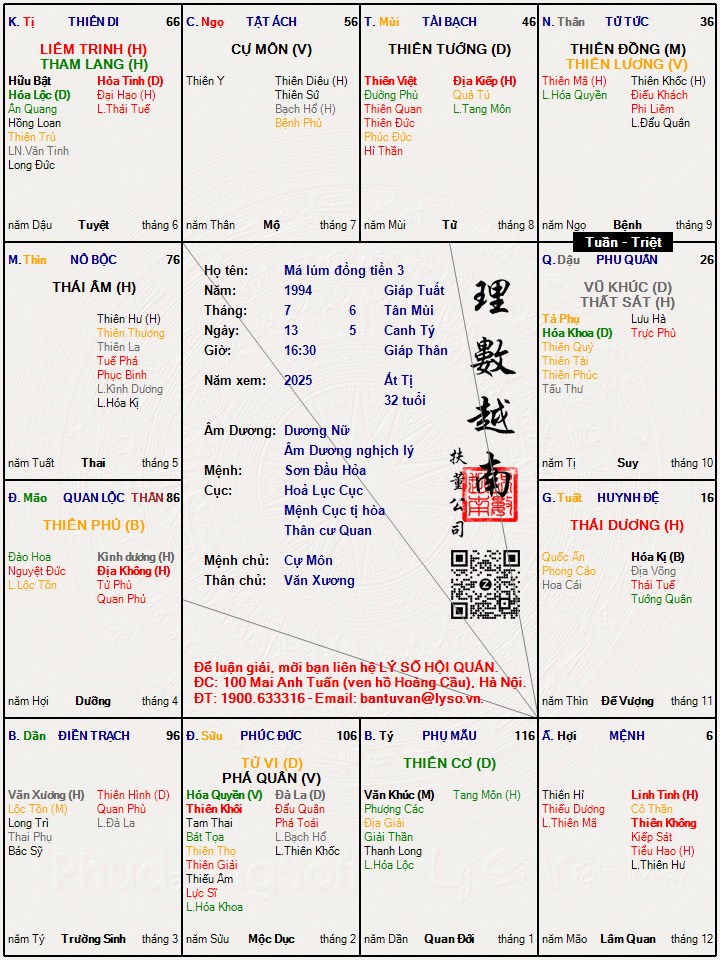 K. Tị THIÊN DI 66
LIÊM TRINH (H)
THAM LANG (H)
Hữu Bật Hỏa Tinh (D)
Hóa Lộc (D) Đại Hao (H)
Ân Quang L.Thái Tuế
Hồng Loan
Thiên Trù
LN.Văn Tinh
Long Đức
năm Dậu Tuyệt tháng 6
C. Ngọ TẬT ÁCH 56
CỰ MÔN (V)
Thiên Y Thiên Diêu (H)
Thiên Sứ
Bạch Hổ (H)
Bệnh Phù
năm Thân Mộ tháng 7
T. Mùi TÀI BẠCH 46
THIÊN TƯỚNG (D)
Thiên Việt Địa Kiếp (H)
Đường Phù Quả Tú
Thiên Quan L.Tang Môn
Thiên Đức
Phúc Đức
Hỉ Thần
năm Mùi Tử tháng 8
N. Thân TỬ TỨC 36
THIÊN ĐỒNG (M)
THIÊN LƯƠNG (V)
Thiên Mã (H) Thiên Khốc (H)
L.Hóa Quyền Điếu Khách
Phi Liêm
L.Đẩu Quân
năm Ngọ Bệnh tháng 9
Tuần - Triệt
M. Thìn NÔ BỘC 76
THÁI ÂM (H)
Thiên Hư (H)
Thiên Thương
Thiên La
Tuế Phá
Phục Binh
L.Kình Dương
L.Hóa Kị
năm Tuất Thai tháng 5
Họ tên: Má lúm đồng tiền 3
Năm: 1994 Giáp Tuất
Tháng: 7 6 Tân Mùi
Ngày: 13 5 Canh Tý
Giờ: 16:30 Giáp Thân
Năm xem: 2025 Ất Tị
32 tuổi
Âm Dương: Dương Nữ
Âm Dương nghịch lý
Mệnh: Sơn Đầu Hỏa
Cục: Hoả Lục Cục
Mệnh Cục tị hòa
Thân cư Quan
Mệnh chủ: Cự Môn
Thân chủ: Văn Xương
理數越南
扶董公司
Để luận giải, mời bạn liên hệ LÝ SỐ HỘI QUÁN.
ĐC: 100 Mai Anh Tuấn (ven hồ Hoàng Cầu), Hà Nội.
ĐT: 1900.633316 - Email: bantuvan@lyso.vn.
Q. Dậu PHU QUÂN 26
VŨ KHÚC (D)
THẤT SÁT (H)
Tả Phụ Lưu Hà
Hóa Khoa (D) Trực Phù
Thiên Quý
Thiên Tài
Thiên Phúc
Tấu Thư
năm Tị Suy tháng 10
Đ. Mão QUAN LỘC THÂN 86
THIÊN PHỦ (B)
Đào Hoa Kình dương (H)
Nguyệt Đức Địa Không (H)
L.Lộc Tồn Tử Phù
Quan Phủ
năm Hợi Dưỡng tháng 4
G. Tuất HUYNH ĐỆ 16
THÁI DƯƠNG (H)
Quốc Ấn Hóa Kị (B)
Phong Cáo Địa Võng
Hoa Cái Thái Tuế
Tướng Quân
năm Thìn Đế Vượng tháng 11
B. Dần ĐIỀN TRẠCH 96
Văn Xương (H) Thiên Hình (D)
Lộc Tồn (M) Quan Phù
Long Trì L.Đà La
Thai Phụ
Bác Sỹ
năm Tý Trường Sinh tháng 3
Đ. Sửu PHÚC ĐỨC 106
TỬ VI (D)
PHÁ QUÂN (V)
Hóa Quyền (V) Đà La (D)
Thiên Khôi Đẩu Quân
Tam Thai Phá Toái
Bát Tọa L.Bạch Hổ
Thiên Thọ L.Thiên Khốc
Thiên Giải
Thiếu Âm
Lực Sĩ
L.Hóa Khoa
năm Sửu Mộc Dục tháng 2
B. Tý PHỤ MẪU 116
THIÊN CƠ (D)
Văn Khúc (M) Tang Môn (H)
Phượng Các
Địa Giải
Giải Thần
Thanh Long
L.Hóa Lộc
năm Dần Quan Đới tháng 1
Ấ. Hợi MỆNH 6
Thiên Hỉ Linh Tinh (H)
Thiếu Dương Cô Thần
L.Thiên Mã Thiên Không
Kiếp Sát
Tiểu Hao (H)
L.Thiên Hư
năm Mão Lâm Quan tháng 12